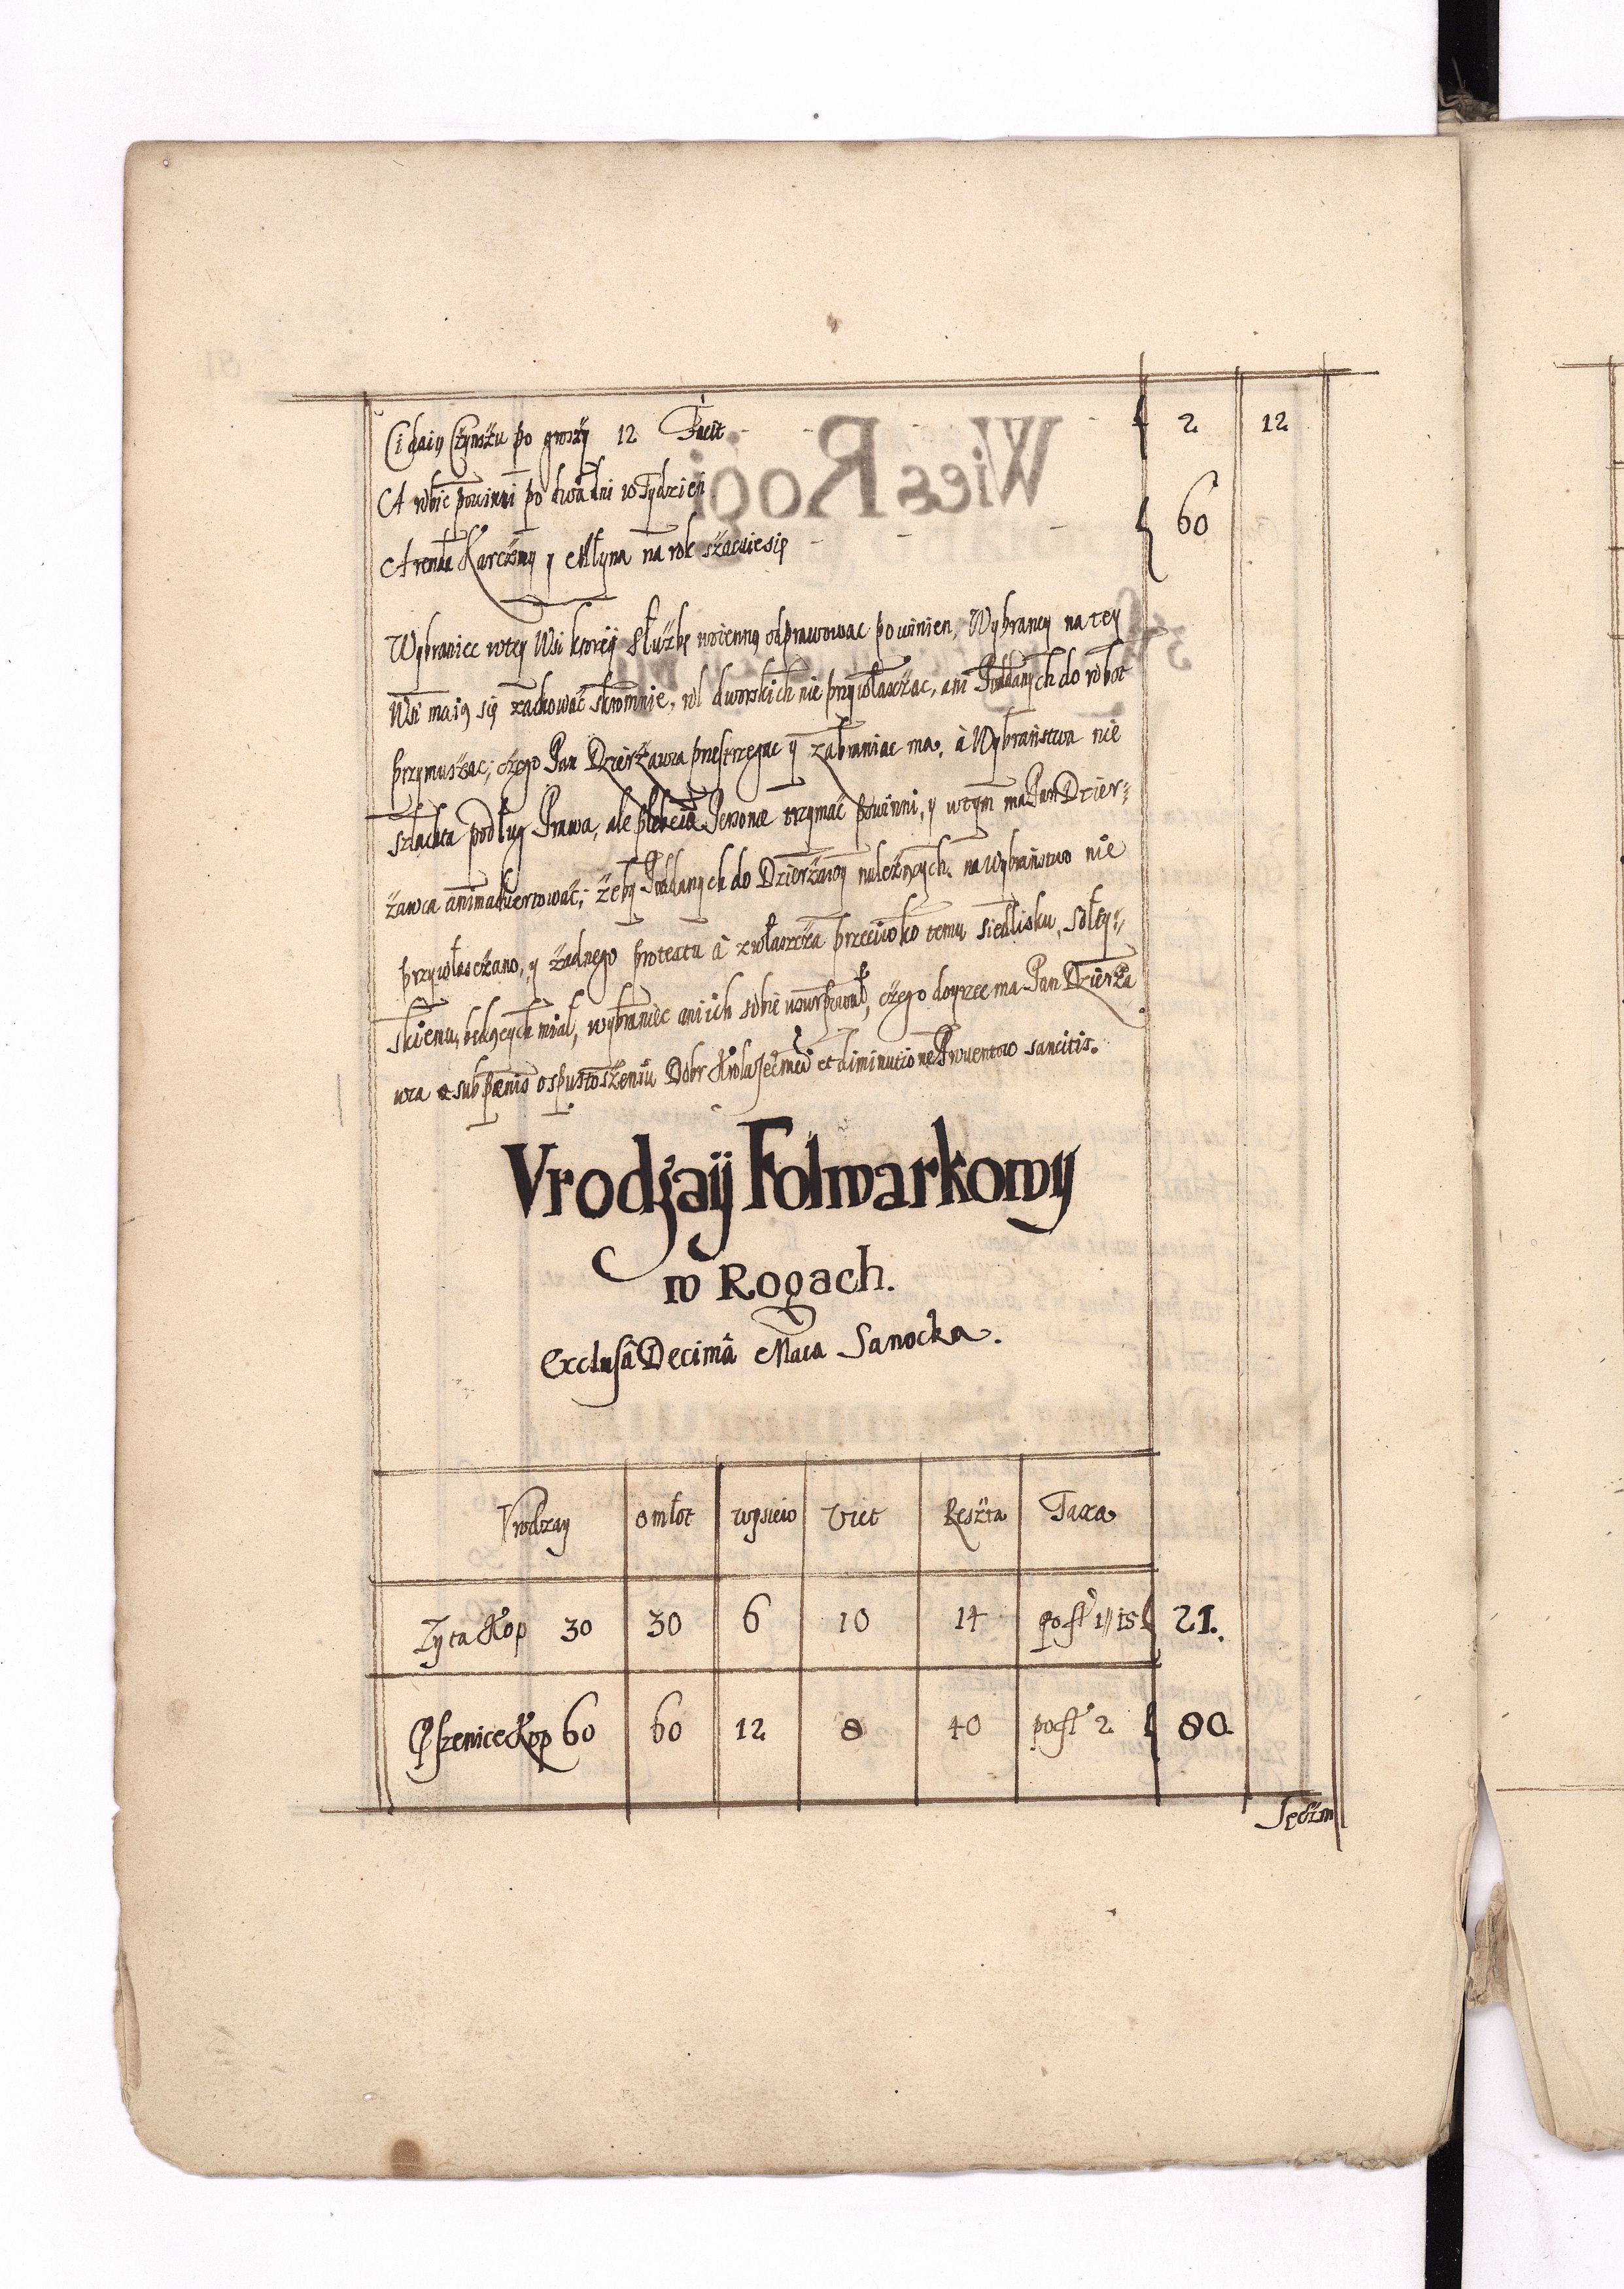 Ci daią Czynszu po groszy 12 Facit - - - 2 12
A robić powinni po dwa dni w Tydzień
Arenda Karczmy y Młyna na rok szacuie się - - - 60
Wybraniec w tey Wsi ktoryij Służbę woienną odprawować powinien, Wybrancy na tey
Wsi maią się zachować skromnie, rol dworskich nie przywłasczać, ani Poddanych do robot
przymuszac, czego Pan Dzierżawca przestrzegac ÿ zabraniac ma, à Wybraństwa nie
szlachta podług Prawa, ale plebeiæ Personæ trzymać powinni, y w tym ma Pan Dzier-
żawca animadwertować, żeby Poddanych do Dzierżawy należących na Wybraństwo nie
przywłasczano, y żadnego protextu à zwłaszcza przeciwko temu siedlisku, Sołty-
skiemu, będących miał, wybraniec ani ich sobie usurpował, czego doyrzec ma Pan Dzierża
wca sub pænis o spustoszeniu Dobr Krola Jeº Mci et diminutione Prouentow sancitis.
Vrodzaÿ Folwarkowy
w Rogach.
Exclusâ Decimâ Maca Sanocka.
Vrodzay omłot wysiew Viet Reszta Taxa
Zyta Kop 30 30 6 10 14 po fł 1// 15 21.
Pszenice Kop 60 60 12 8 40 po fł 2 80